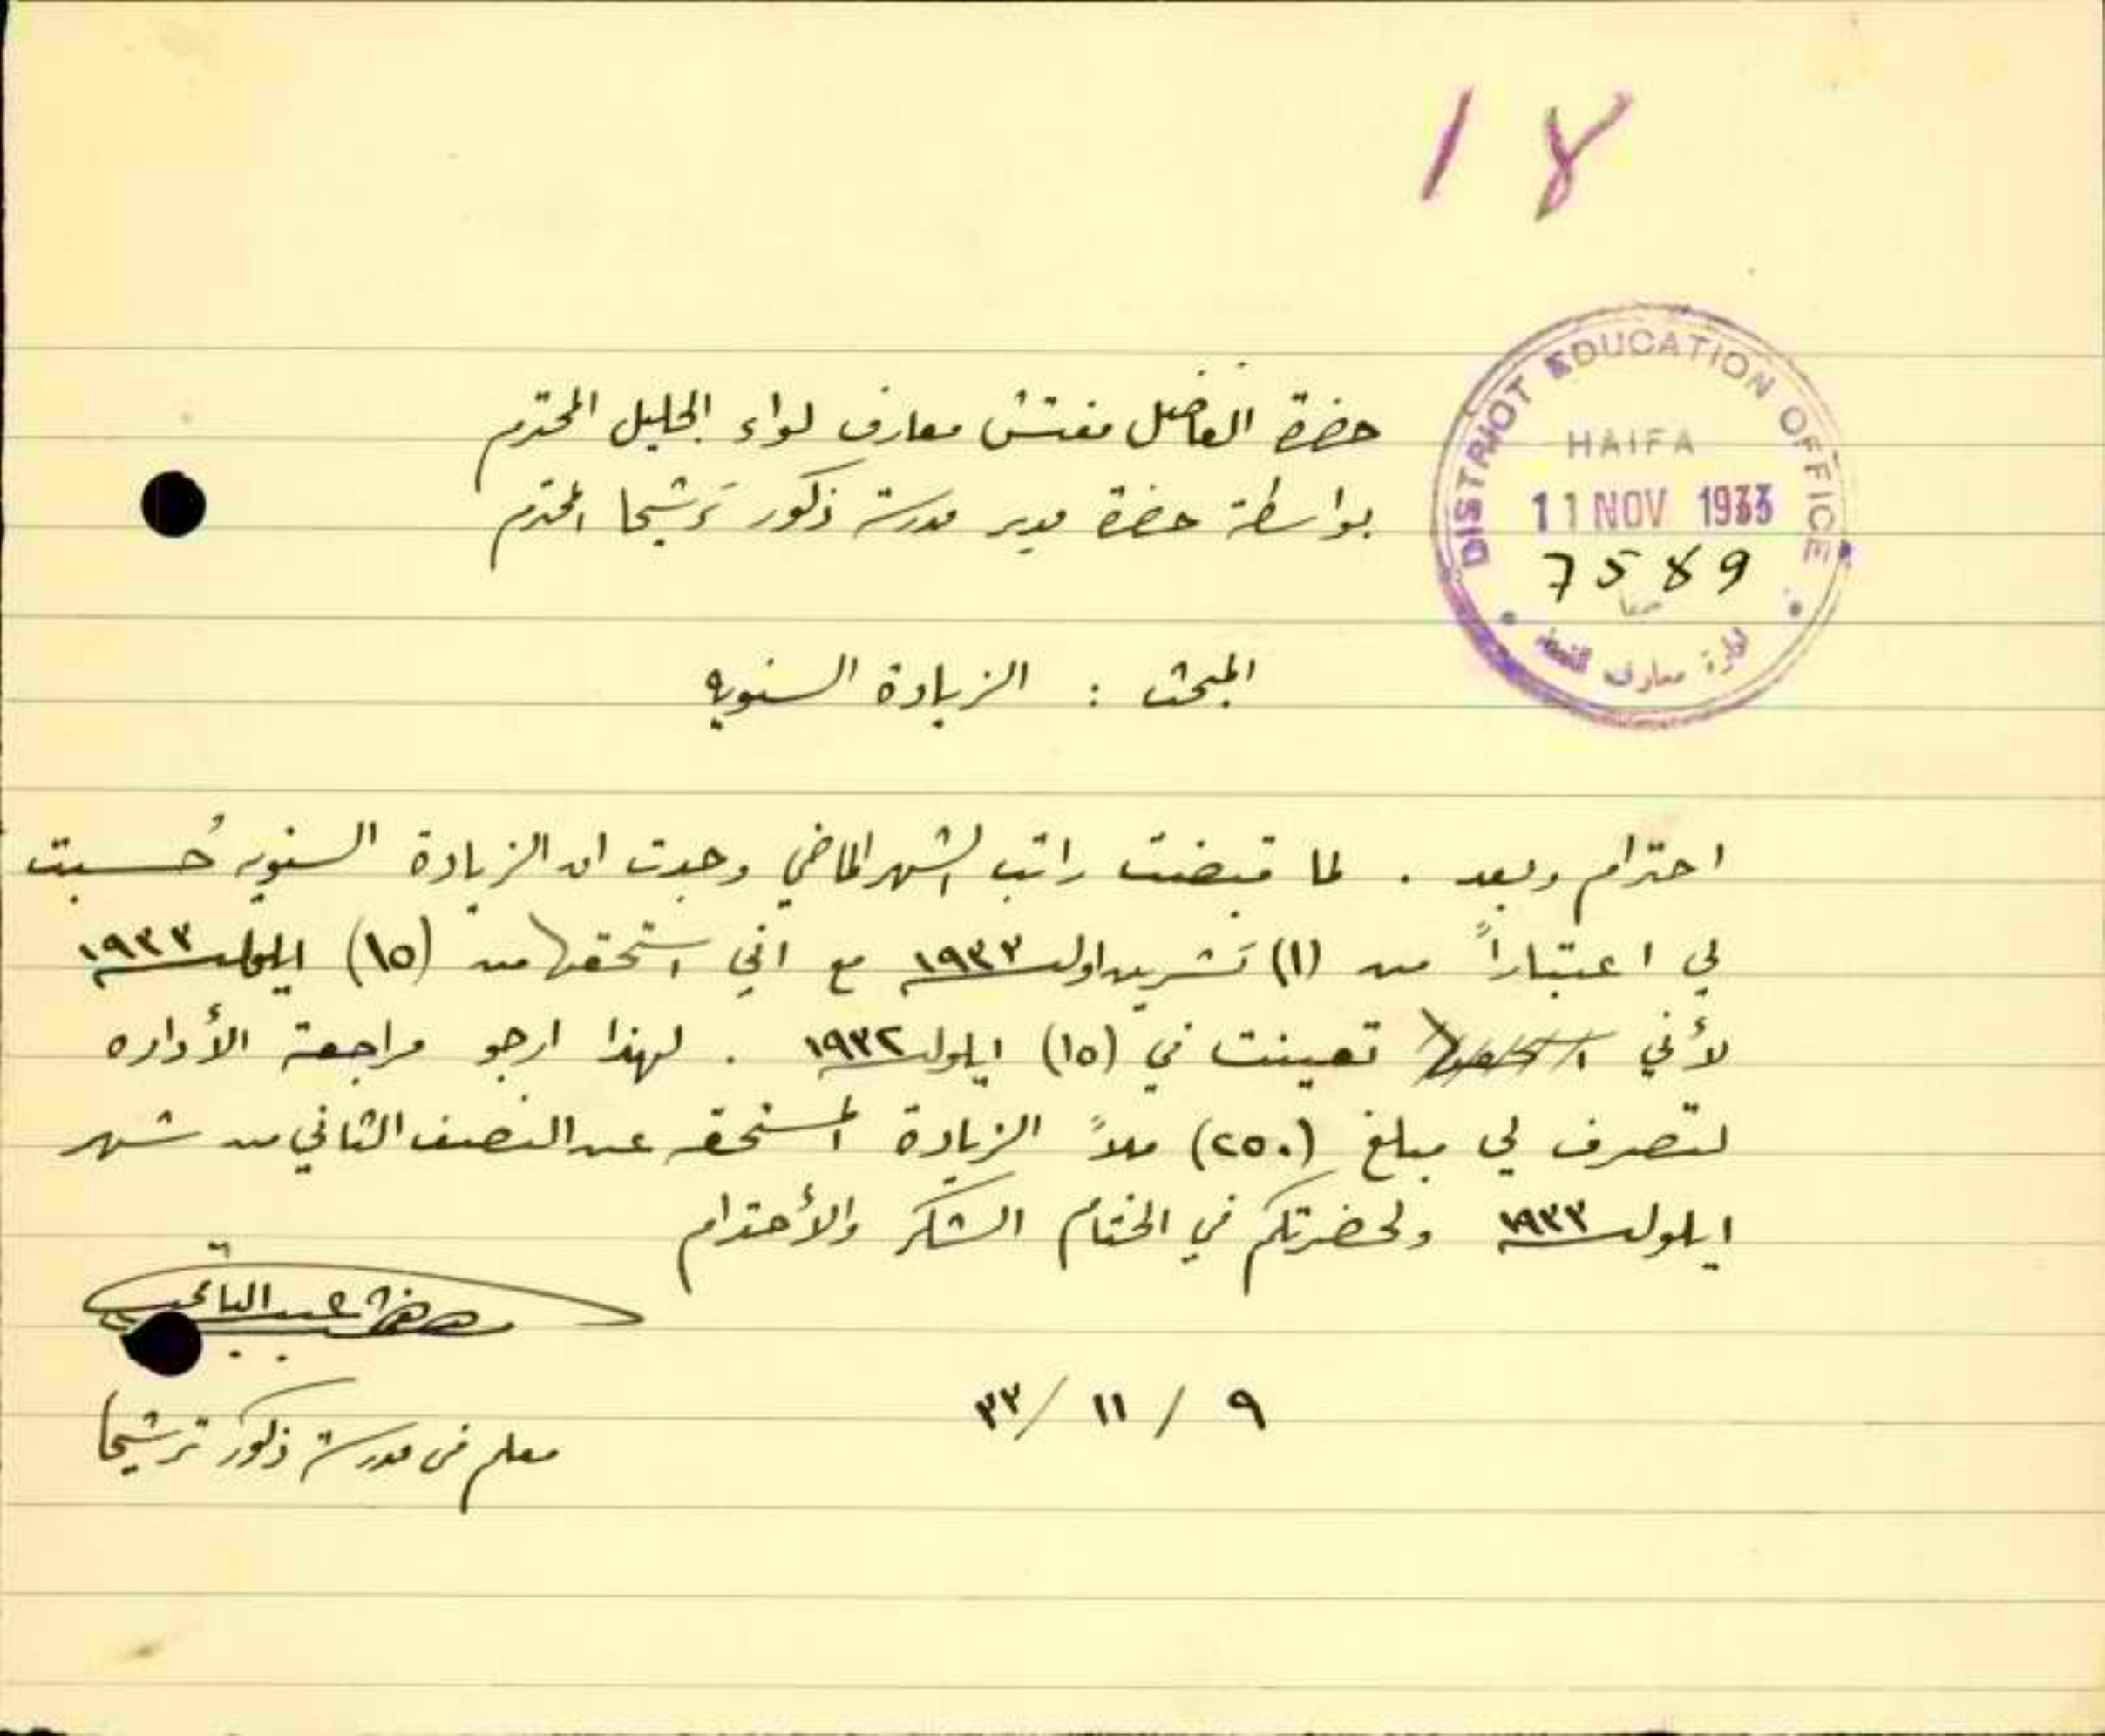 18
DISTRICT EDUCATION OFFICE
HAIFA
11 NOV 1933
7589
حيفا
معارف
حضرة الفاضل مفتش معارف لواء الجليل المحترم
بواسطة حضرة مدير مدرسة ذكور ترشيحا المحترم
المبحث : الزيادة السنويه
احترام وبعد . لما قبضت راتب الشهر الماضي وجدت ان الزيادة السنويه حُسبت
لي اعتباراً من (١) تشرين اول ١٩٣٣ مع اني استحقها من (١٥) ايلول ١٩٣٣
لأني تعينت في (١٥) ايلول ١٩٣٢ . لهذا ارجو مراجعة الأداره
لتصرف لي مبلغ (٢٥٠) ملاً الزيادة المستحقه عن النصف الثاني من شهر
ايلول ١٩٣٣ ولحضرتكم في الختام الشكر والأحترام
عبد
٩ / ١١ / ٣٣
معلم في مدرسة ذكور ترشيحا